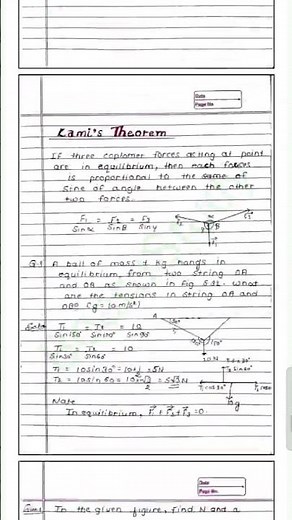 Date
Page No.
Lami's Theorem
If three coplamer forces acting at point
are in equilibrium, then each forces
is proportional to the same of
sine of angle between the other
two forces.
F1/Sinα = F2/Sinβ = F3/Sinγ
Q.1 A ball of mass 1 kg hangs in
equilibrium, from two string OA
and OB as shown in fig 5.32. what
are the tensions in string OA and
OB? (g = 10 m/s²)
T1/Sin150° = T2/Sin120° = 10/Sin90°
T1/Sin30° = T2/Sin60° = 10
T1 = 10sin30° = 10×½ = 5N
T2 = 10sin60 = 10×√3/2 = 5√3N
Note
In equilibrium, F1+F2+F3 = 0
Date
Page No.
In the given figure, find N and a